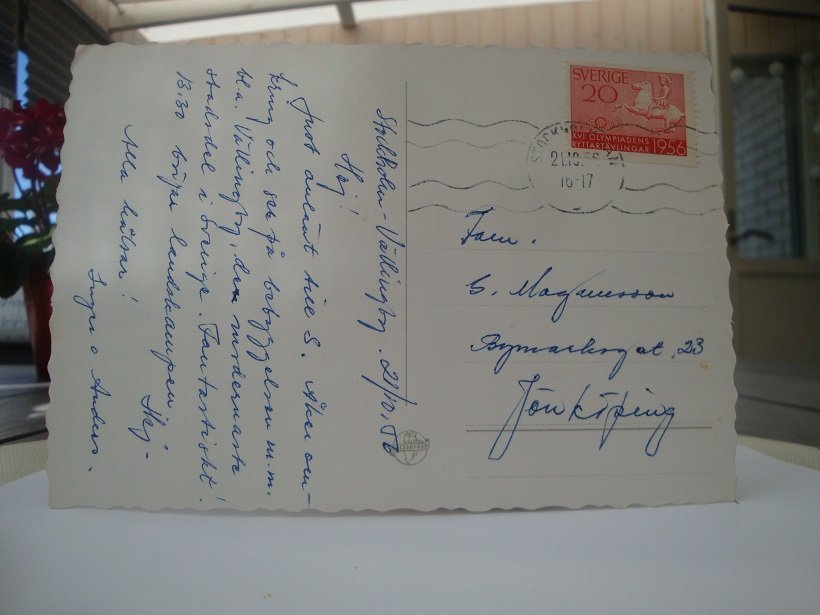 Stockholm-Vällingby. 21/10.56
Hej!
Just anlänt till S. Åker om-
kring och ser på bebyggelsen m.m.
bl.a. Vällingby, den modernaste
stadsdel i Sverige. Fantastiskt!
13.30 börjar landskampen. Hej-
Alla hälsar!
Inger o Anders.
SVERIGE
20
XVI OLYMPIADENS
RYTTARTÄVLINGAR 1956
STOCKHOLM
21.10.56
16-17
Fam.
G. Magnusson
Bymarksgat. 23
Jönköping